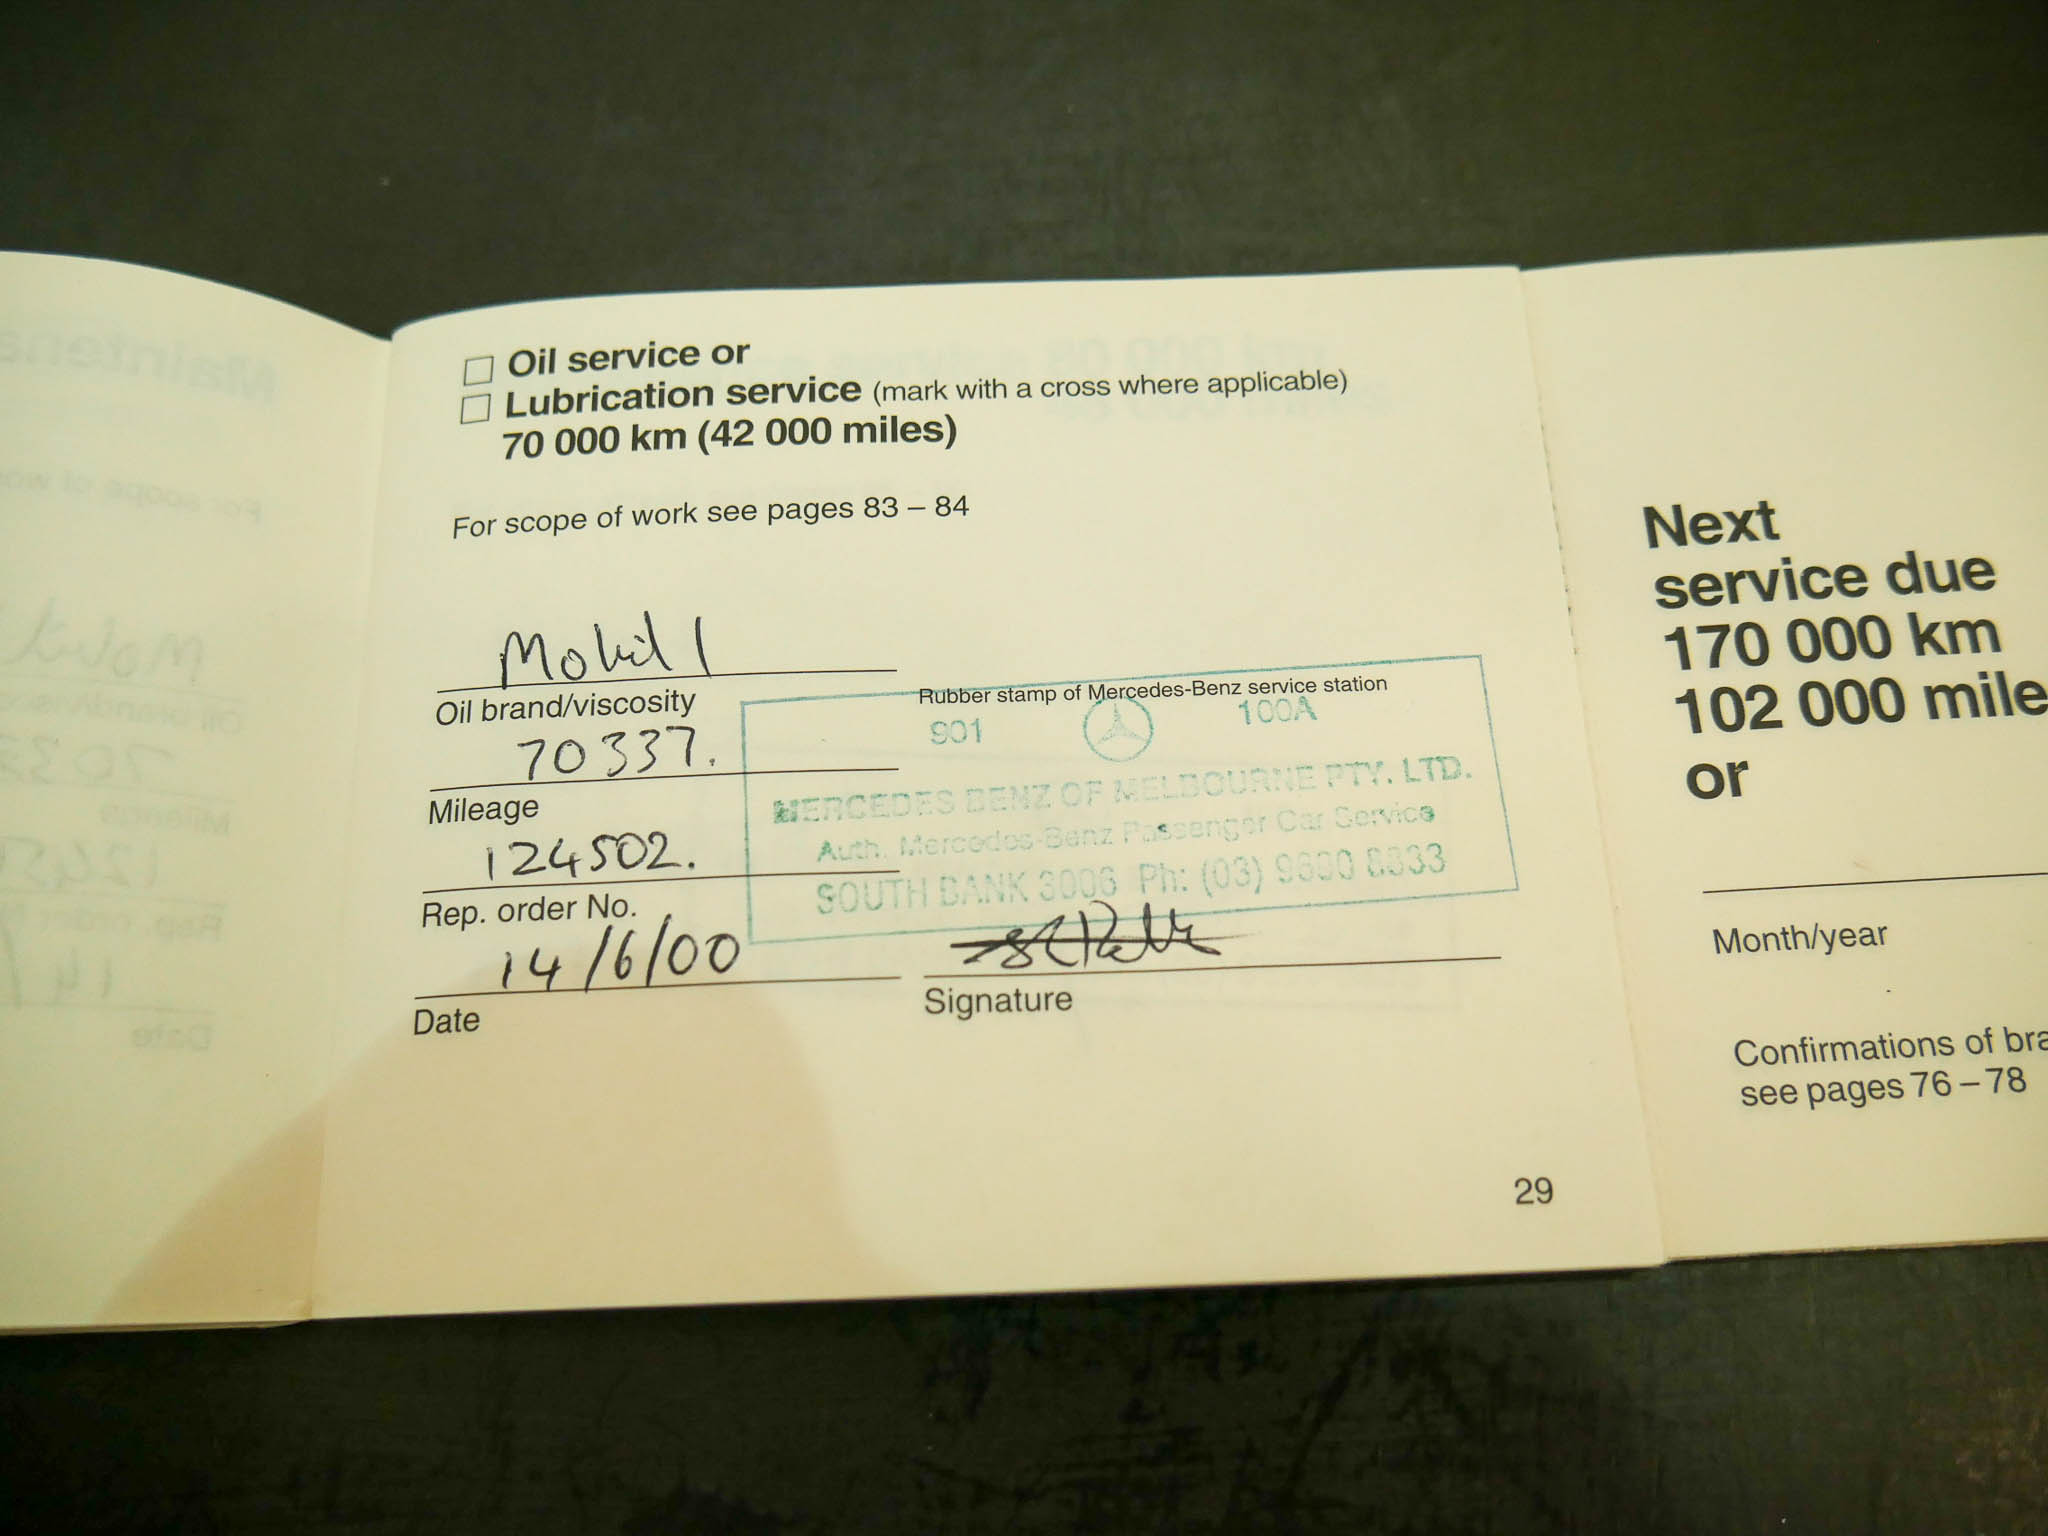 Oil service or
Lubrication service (mark with a cross where applicable)
70 000 km (42 000 miles)
For scope of work see pages 83 – 84
Mobil 1
Oil brand/viscosity
70337.
Mileage
124502.
Rep. order No.
14/6/00
Date
Rubber stamp of Mercedes-Benz service station
901 100A
MERCEDES BENZ OF MELBOURNE PTY. LTD.
Auth. Mercedes-Benz Passenger Car Service
SOUTH BANK 3006 Ph: (03) 9690 8833
Signature
29
Next
service due
170 000 km
102 000 mile
or
Month/year
Confirmations of bra
see pages 76 – 78